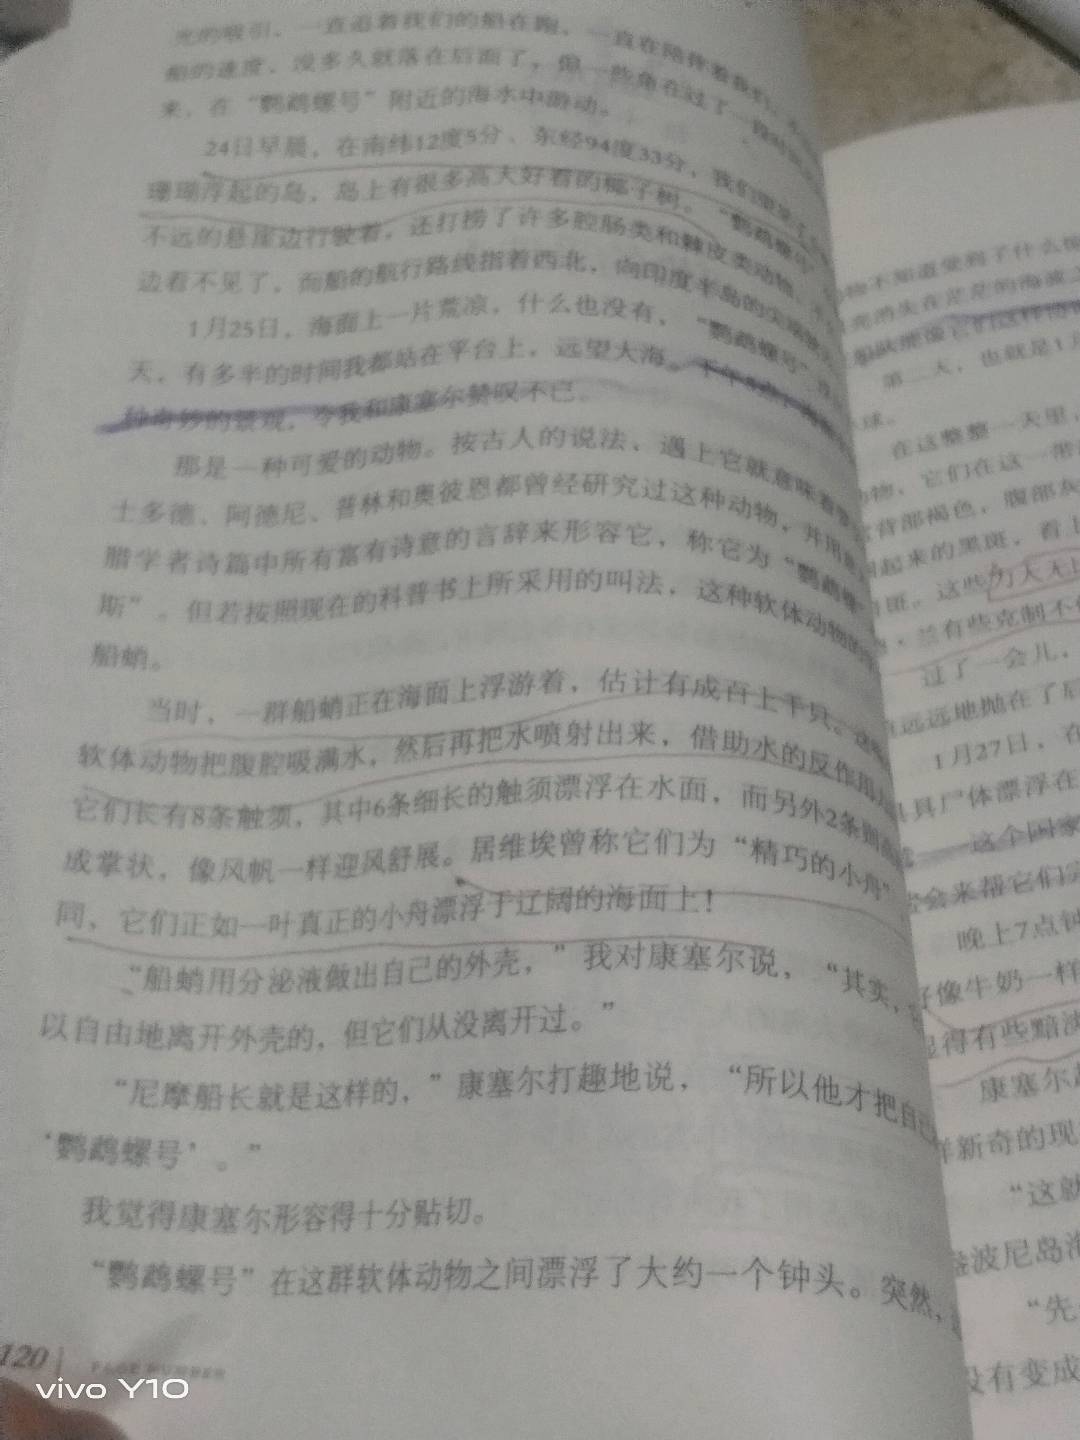 光的吸引，一直追着我们的船在跑，一直在陪伴着我们
船的速度，没多久就落在后面了，但一些鱼在过了一段时间
来，在“鹦鹉螺号”附近的海水中游动。
24日早晨，在南纬12度5分、东经94度33分，我们
珊瑚浮起的岛，岛上有很多高大好看的椰子树。“鹦鹉螺号”
不远的悬崖边行驶着，还打捞了许多腔肠类和棘皮类动物，
边看不见了，而船的航行路线指着西北，向印度半岛的尖端驶
1月25日，海面上一片荒凉，什么也没有，“鹦鹉螺号”
天，有多半的时间我都站在平台上，远望大海。下午
种奇妙的景观，令我和康塞尔赞叹不已。
那是一种可爱的动物。按古人的说法，遇上它就意味着
士多德、阿德尼、普林和奥彼恩都曾经研究过这种动物，并用
腊学者诗篇中所有富有诗意的言辞来形容它，称它为“鹦鹉
斯”。但若按照现在的科普书上所采用的叫法，这种软体动物
船蛸。
当时，一群船蛸正在海面上浮游着，估计有成百上千只。这
软体动物把腹腔吸满水，然后再把水喷射出来，借助水的反作用
它们长有8条触须，其中6条细长的触须漂浮在水面，而另外2条则
成掌状，像风帆一样迎风舒展。居维埃曾称它们为“精巧的小舟”
同，它们正如一叶真正的小舟漂浮于辽阔的海面上！
“船蛸用分泌液做出自己的外壳，”我对康塞尔说，“其实，
以自由地离开外壳的，但它们从没离开过。”
“尼摩船长就是这样的，”康塞尔打趣地说，“所以他才把自己
‘鹦鹉螺号’。”
我觉得康塞尔形容得十分贴切。
“鹦鹉螺号”在这群软体动物之间漂浮了大约一个钟头。突然，
120
PAGE NUMBER
物不知道受到了什么
消失在茫茫的海波之
船队能像它们这样
第二天，也就是1月
球。
在这整整一天里，
动物，它们在这一带
背部褐色，腹部灰
起来的黑斑，看上
斑。这些力大无
兰有些克制不
过了一会儿，
远远地抛在了后
1月27日，在
具尸体漂浮在
这个国家
会来帮它们
晚上7点钟
好像牛奶一样
显得有些黯淡
康塞尔
样新奇的现
“这就
波尼岛
“先
没有变成
vivo Y10